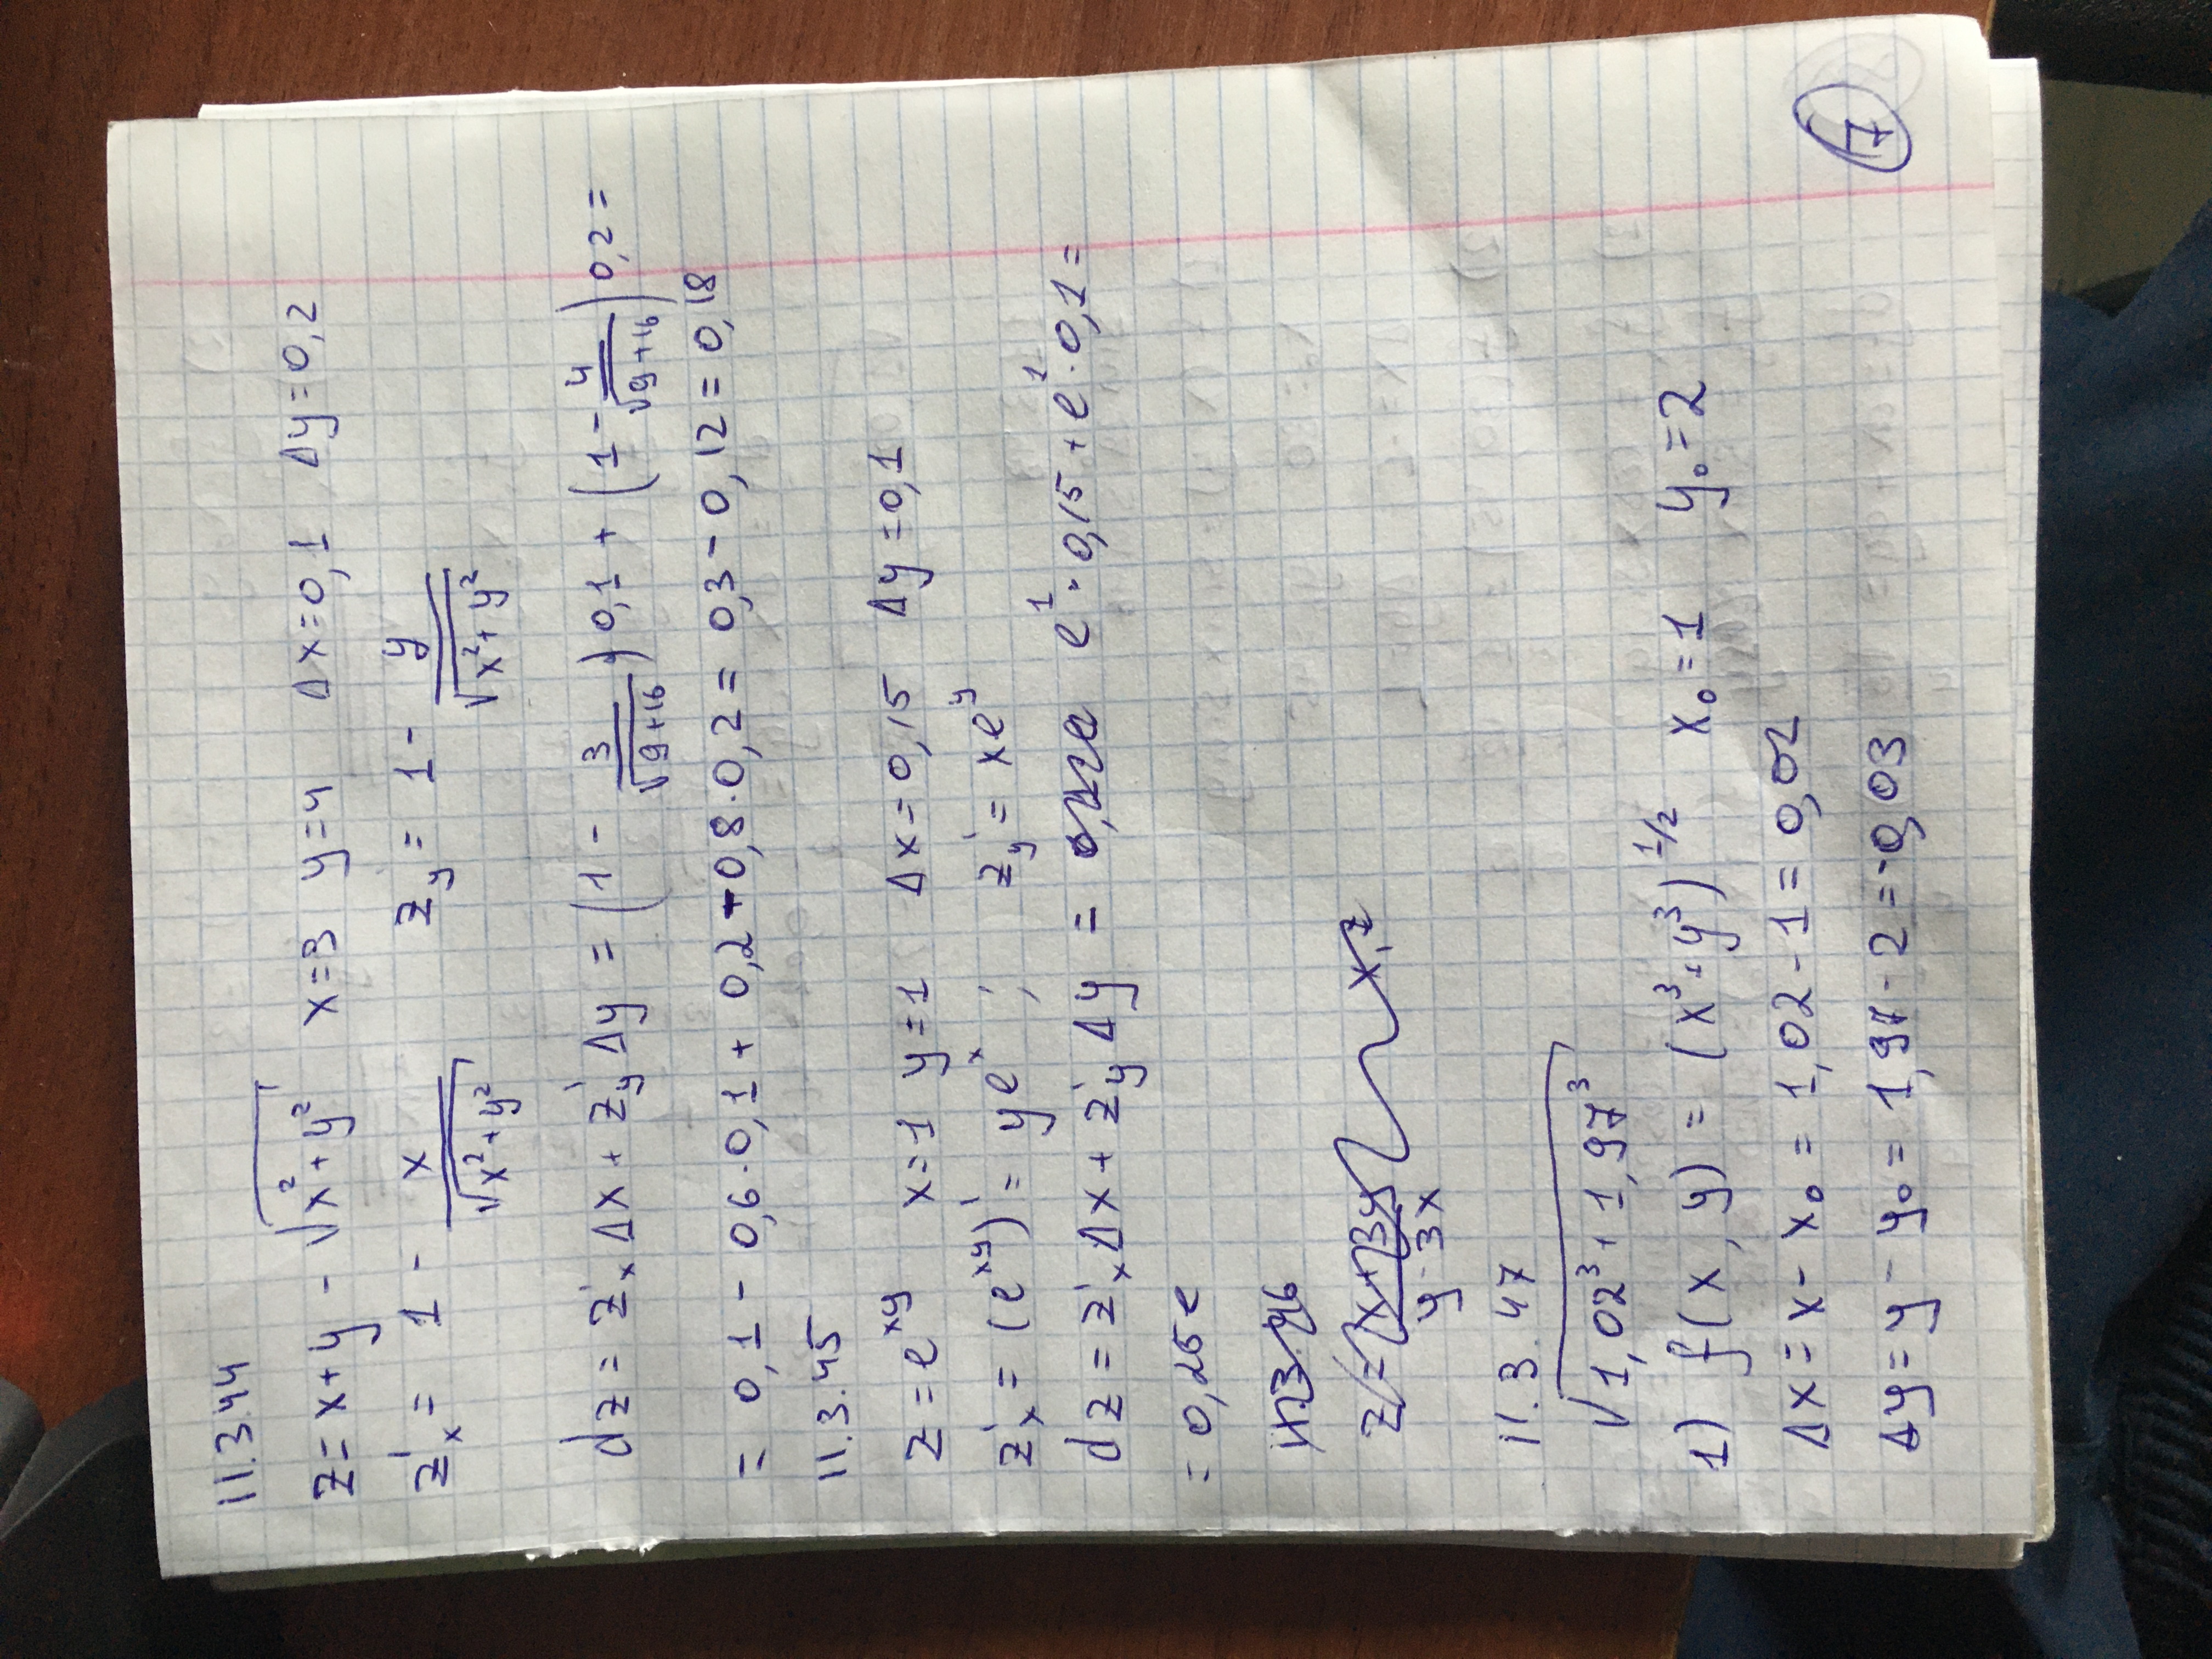 11.3.44
z = x + y - √(x² + y²) x = 3 y = 4 Δx = 0,1 Δy = 0,2
z'ₓ = 1 - x/√(x² + y²) z'ᵧ = 1 - y/√(x² + y²)
dz = z'ₓ Δx + z'ᵧ Δy = (1 - 3/√(9+16)) 0,1 + (1 - 4/√(9+16)) 0,2 =
= 0,1 - 0,6·0,1 + 0,2 - 0,8·0,2 = 0,3 - 0,12 = 0,18
11.3.45
z = e^xy x = 1 y = 1 Δx = 0,15 Δy = 0,1
z'ₓ = (e^xy)' = ye^x ; z'ᵧ = xe^y
dz = z'ₓ Δx + z'ᵧ Δy = e¹·0,15 + e¹·0,1 =
= 0,25e
11.3.46
z = (x+3y)/(y-3x) x, z
11.3.47
√(1,02³ + 1,97³)
1) f(x, y) = (x³ + y³)^1/2 x₀ = 1 y₀ = 2
Δx = x - x₀ = 1,02 - 1 = 0,02
Δy = y - y₀ = 1,97 - 2 = -0,03
7